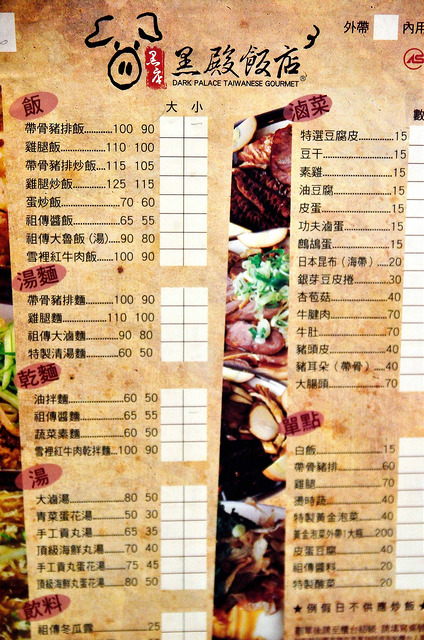 外帶 內用
黑店 黑殿飯店
DARK PALACE TAIWANESE GOURMET
大 小
飯
帶骨豬排飯............100 90
雞腿飯............110 100
帶骨豬排炒飯....115 105
雞腿炒飯............125 115
蛋炒飯............70 60
祖傳醬飯............65 55
祖傳大魯飯(湯)....90 80
雪裡紅牛肉飯....100 90
湯麵
帶骨豬排麵............100 90
雞腿麵............110 100
祖傳大滷麵............90 80
特製清湯麵............60 50
乾麵
油拌麵............60 55
祖傳醬麵............65 55
蔬菜素麵............60 50
雪裡紅牛肉乾拌麵...100 90
湯
大滷湯............80 50
青菜蛋花湯............50 30
手工貢丸湯............65 35
頂級海鮮丸湯............70 40
手工貢丸蛋花湯............75 45
頂級海鮮丸蛋花湯............80 50
飲料
祖傳冬瓜露............25
滷菜 數
特選豆腐皮............15
豆干............15
素雞............15
油豆腐............15
皮蛋............15
功夫滷蛋............15
鵪鶉蛋............15
日本昆布(海帶)....20
銀芽豆皮捲............30
杏苞菇............40
牛腱肉............70
牛肚............70
豬頭皮............40
豬耳朵(帶骨)....40
大腸頭............70
單點
白飯............15
帶骨豬排............60
雞腿............70
燙時蔬............40
特製黃金泡菜............40
黃金泡菜外帶1大瓶...200
皮蛋豆腐............40
祖傳醬料............20
特製酸菜............20
★例假日不供應炒飯★